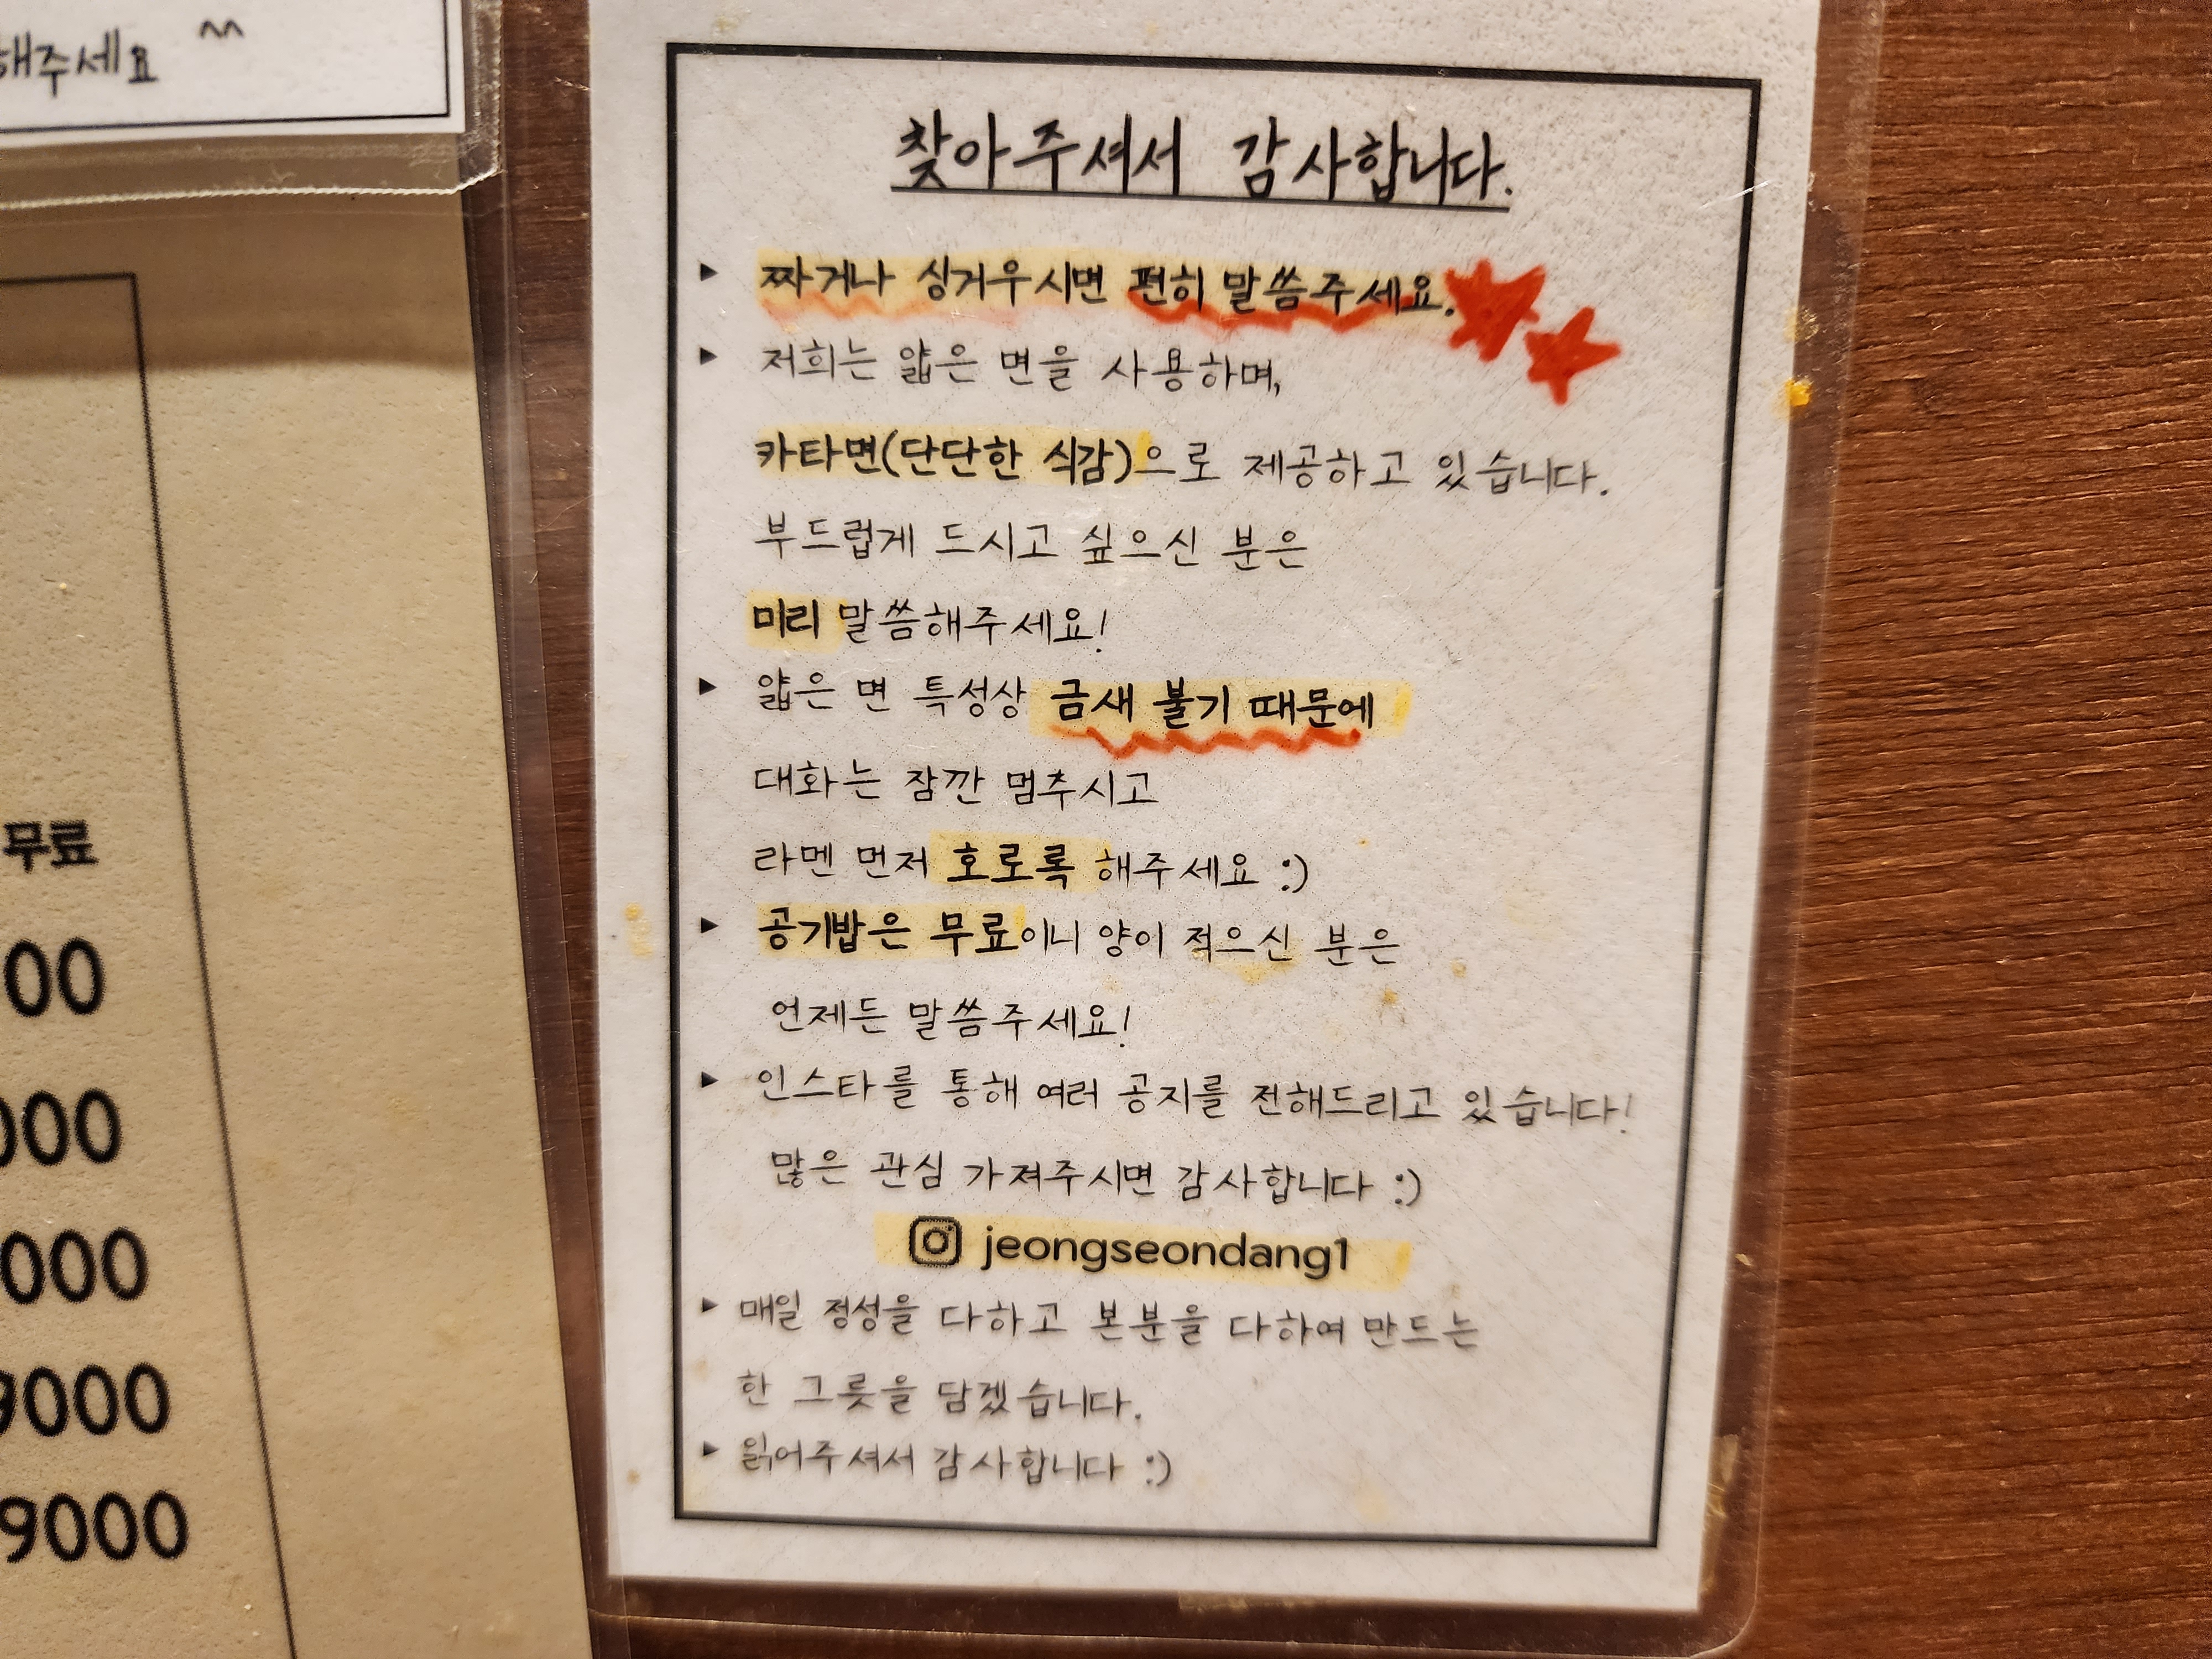 해주세요 ^^
무료
00
000
000
9000
9000
찾아주셔서 감사합니다.
▶ 짜거나 싱거우시면 편히 말씀주세요.
▶ 저희는 얇은 면을 사용하며,
카타면(단단한 식감)으로 제공하고 있습니다.
부드럽게 드시고 싶으신 분은
미리 말씀해주세요!
▶ 얇은 면 특성상 금새 불기 때문에
대화는 잠깐 멈추시고
라멘 먼저 호로록 해주세요 :)
▶ 공기밥은 무료이니 양이 적으신 분은
언제든 말씀주세요!
▶ 인스타를 통해 여러 공지를 전해드리고 있습니다!
많은 관심 가져주시면 감사합니다 :)
jeongseondang1
▶ 매일 정성을 다하고 본분을 다하여 만드는
한 그릇을 담겠습니다.
▶ 읽어주셔서 감사합니다 :)